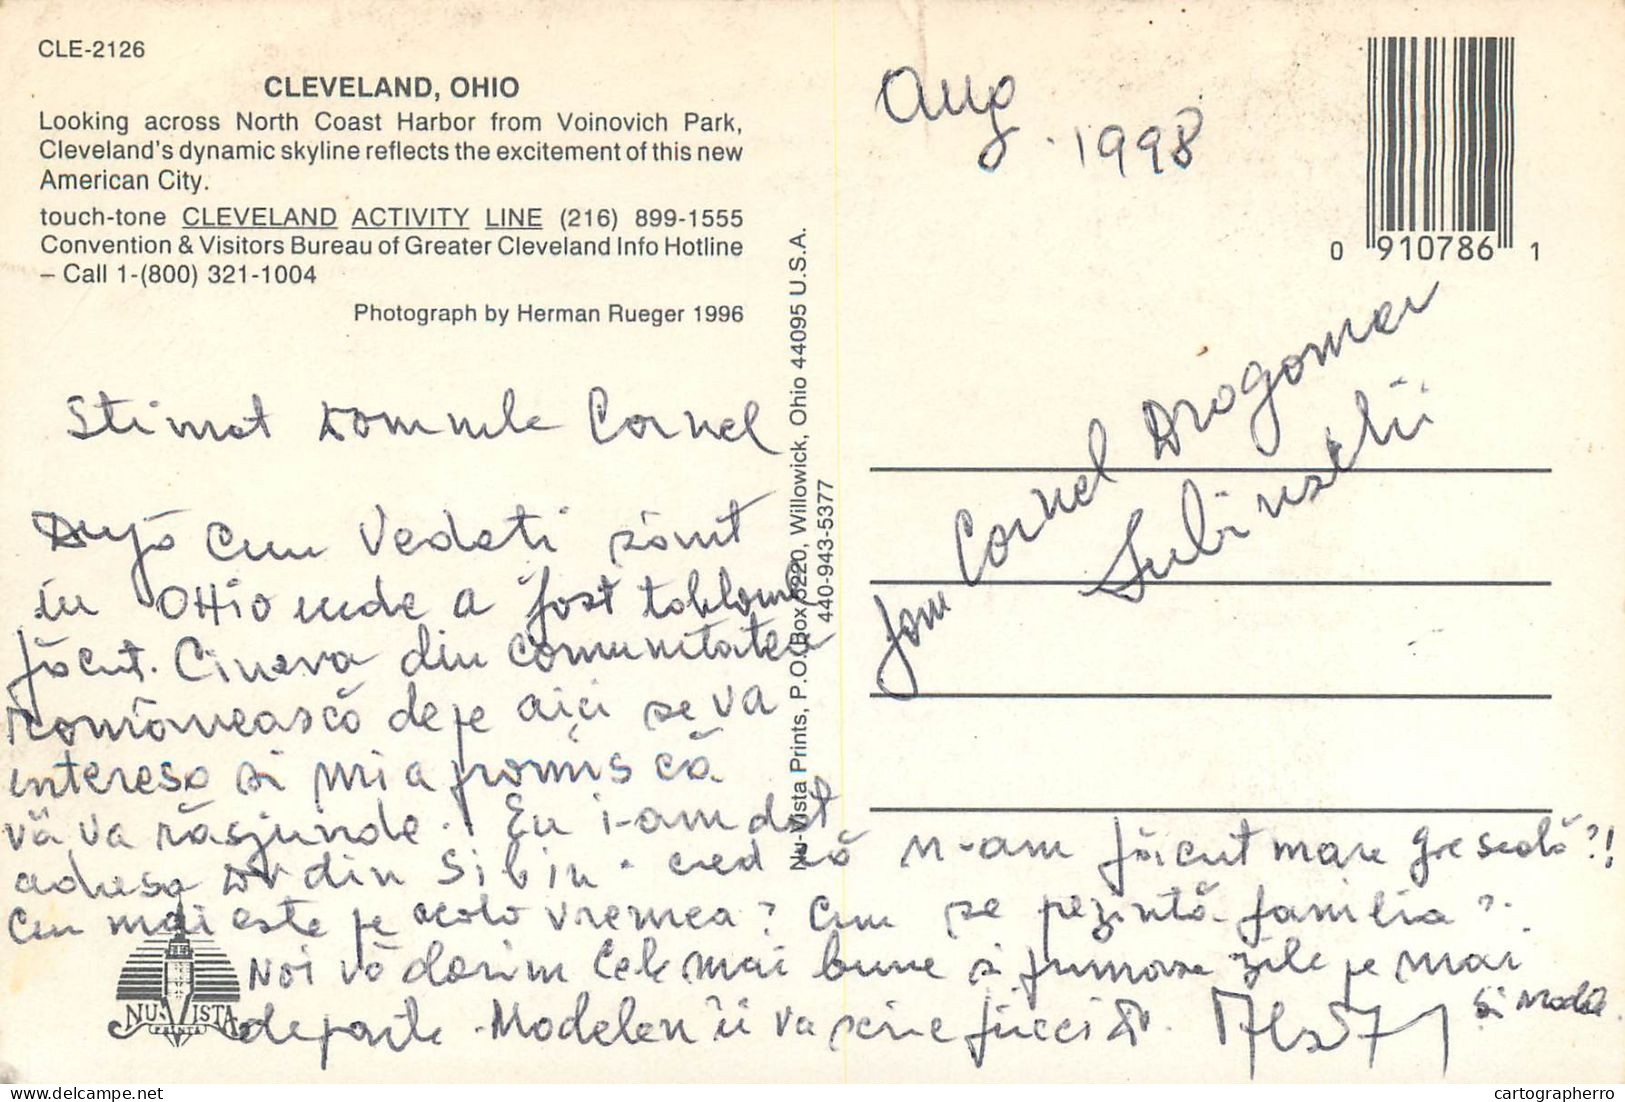 CLE-2126
CLEVELAND, OHIO
Looking across North Coast Harbor from Voinovich Park,
Cleveland's dynamic skyline reflects the excitement of this new
American City.
touch-tone CLEVELAND ACTIVITY LINE (216) 899-1555
Convention & Visitors Bureau of Greater Cleveland Info Hotline
– Call 1-(800) 321-1004
Photograph by Herman Rueger 1996
Nu-Vista Prints, P.O. Box 5220, Willowick, Ohio 44095 U.S.A.
440-943-5377
Aug. 1998
0 910786 1
fam Cornel Dragoman
Lubinschi
Stimat Domnule Cornel
După cum Vedeti sânt
in OHio unde a fost
făcut. Cineva din comunitatea
românească de pe aici se va
interesa si mi a promis că
vă va răspunde. Eu i-am dat
adresa Dv din Sibiu. cred că n-am făcut mare greseală?!
Cum mai este pe acolo vremea? Cum se pezintă familia?
Noi vă dorim Cele mai bune si frumoase zile pe mai
departe. îi va scrie fiicei Dv.
si
NU-VISTA
PRINTS
cartographerro